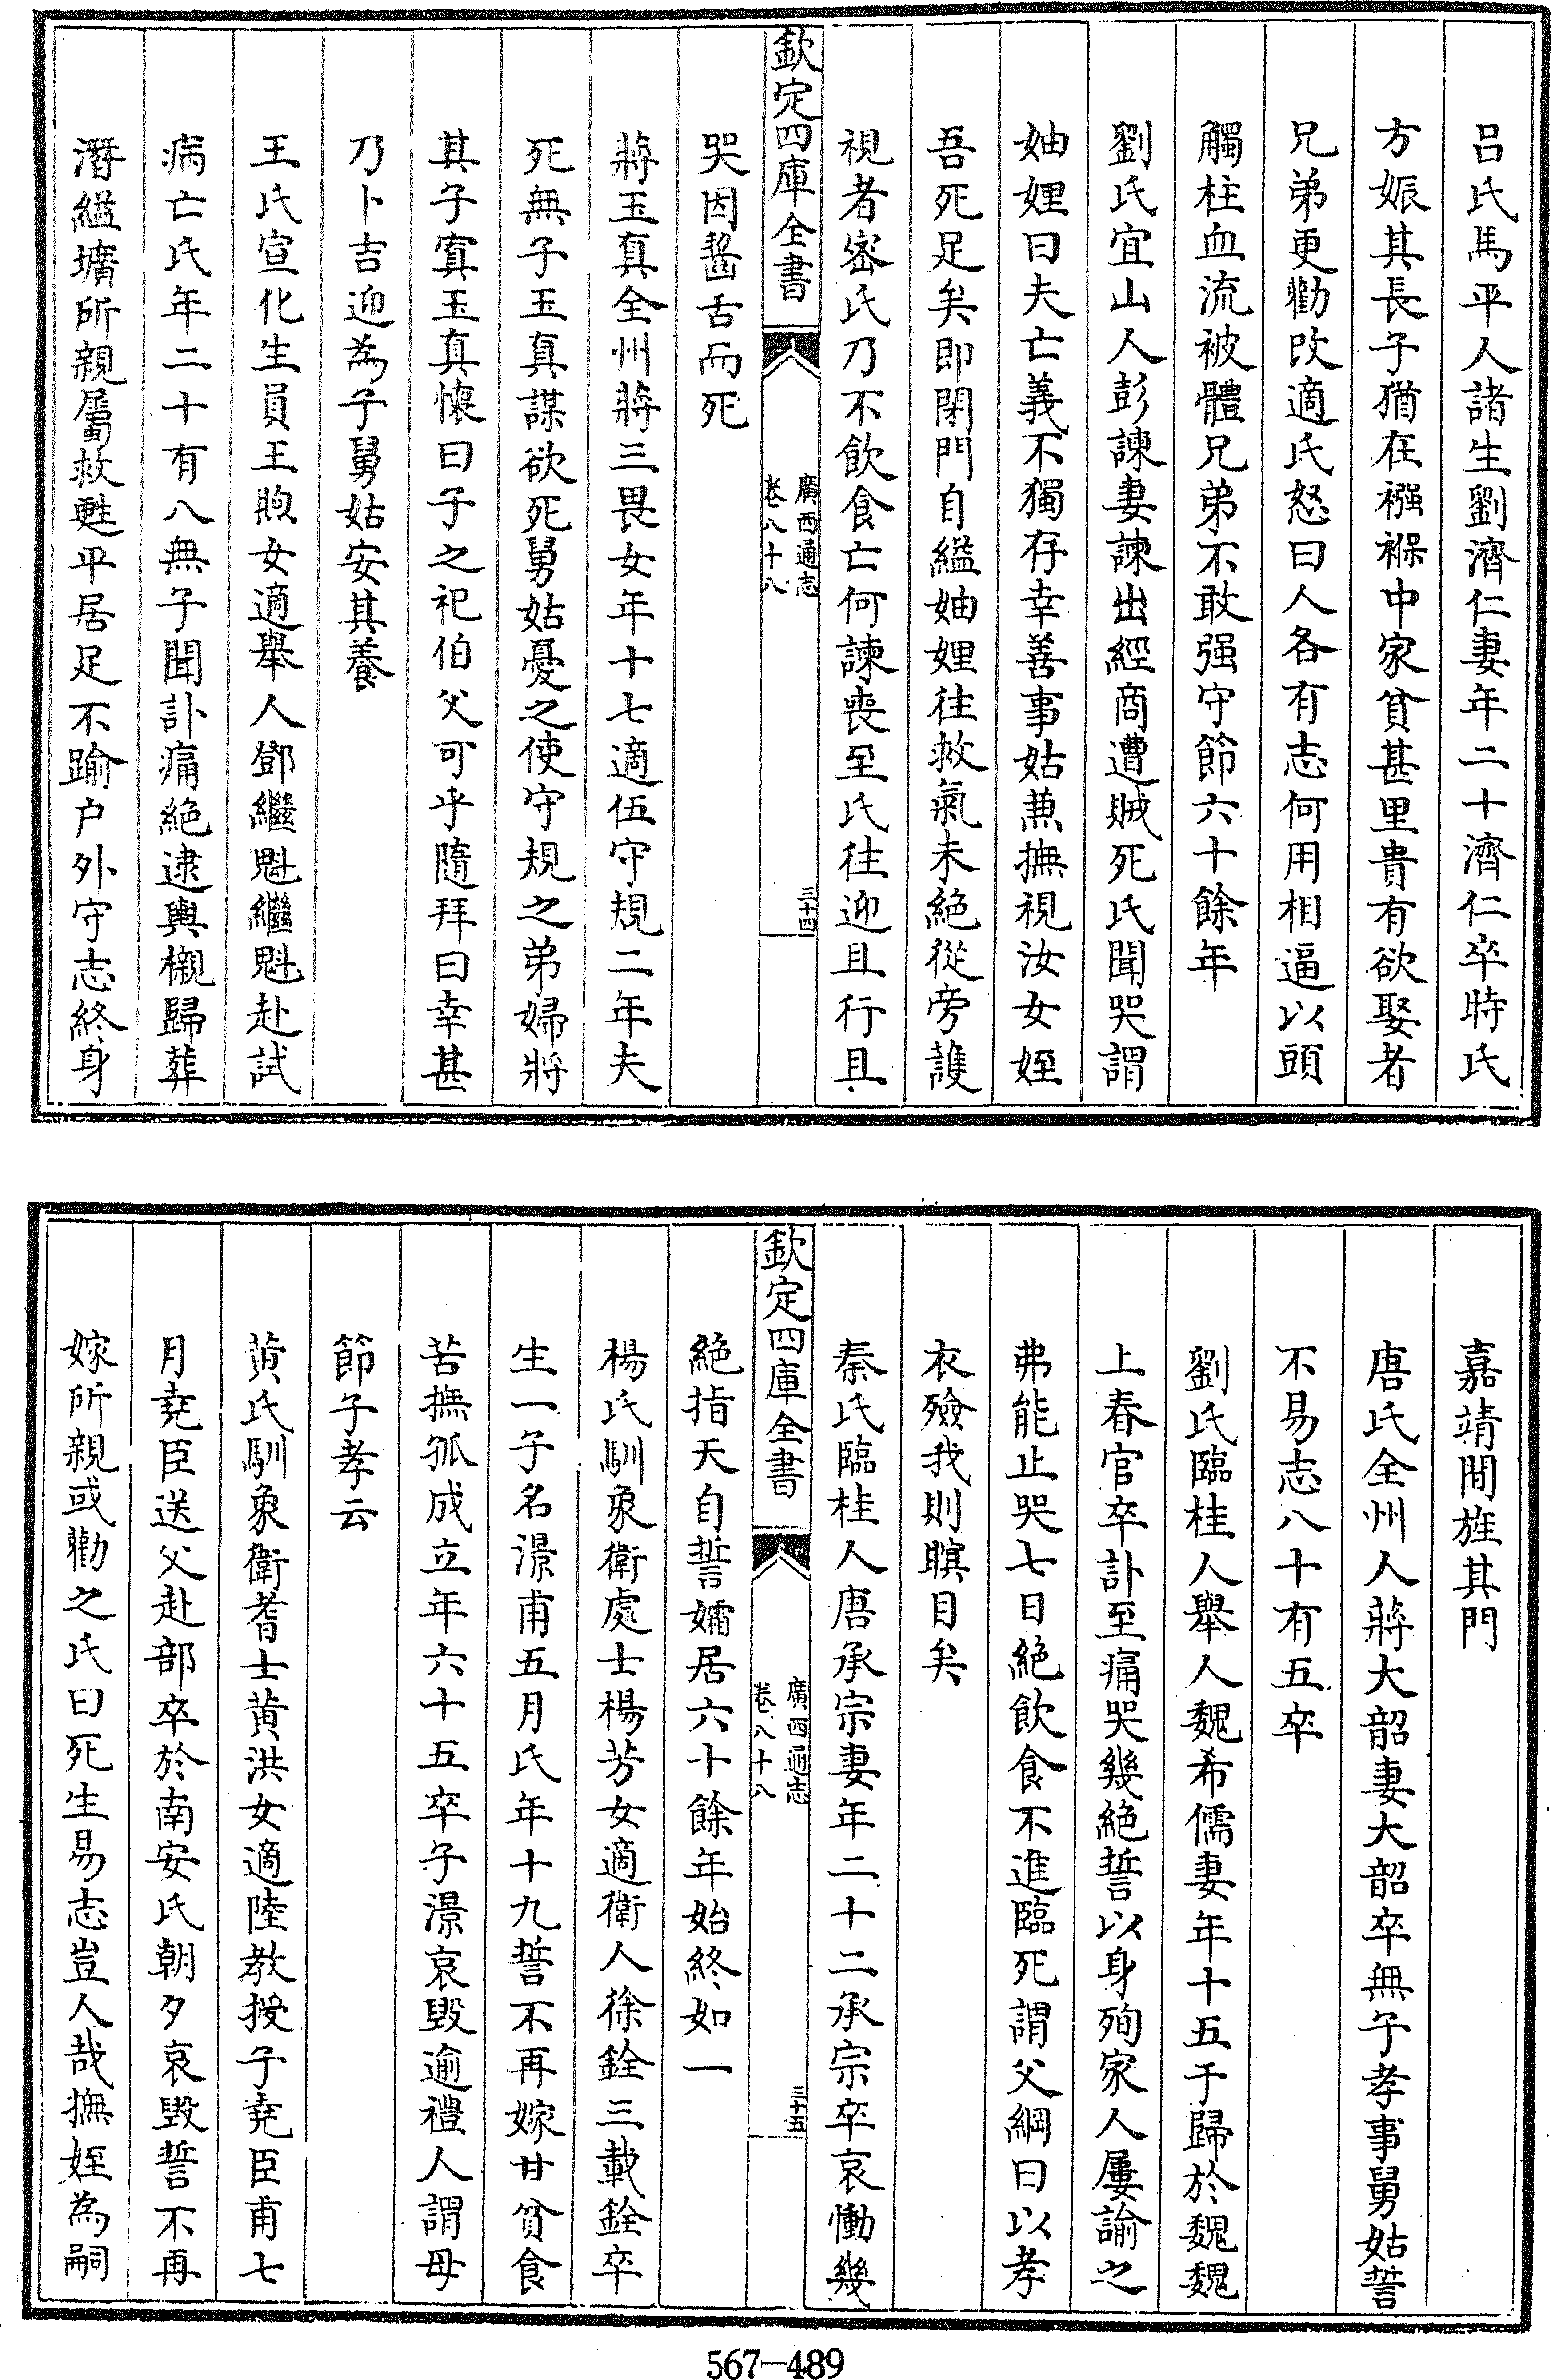 呂氏馬平人諸生劉濟仁妻年二十濟仁卒時氏
方娠其長子猶在襁褓中家貧甚里貴有欲娶者
兄弟更勸改適氏怒曰人各有志何用相逼以頭
觸柱血流被體兄弟不敢强守節六十餘年
劉氏宜山人彭諫妻諫出經商遭賊死氏聞哭謂
妯娌曰夫亡義不獨存幸善事姑兼撫視汝女姪
吾死足矣即閉門自縊妯娌往救氣未絶從旁護
視者密氏乃不飲食亡何諫喪至氏往迎且行且
欽定四庫全書
廣西通志
卷八十八
三十四
哭因齧舌而死
蔣玉真全州蔣三畏女年十七適伍守規二年夫
死無子玉真謀欲死舅姑憂之使守規之弟婦將
其子寘玉真懷曰子之祀伯父可乎隨拜曰幸甚
乃卜吉迎為子舅姑安其養
王氏宣化生員王煦女適舉人鄧繼魁繼魁赴試
病亡氏年二十有八無子聞訃痛絶逮輿櫬歸葬
潛縊壙所親屬救甦平居足不踰户外守志終身
嘉靖間旌其門
唐氏全州人蔣大韶妻大韶卒無子孝事舅姑誓
不易志八十有五卒
劉氏臨桂人舉人魏希儒妻年十五于歸於魏魏
上春官卒訃至痛哭幾絶誓以身殉家人屢諭之
弗能止哭七日絶飲食不進臨死謂父綱曰以孝
衣殮我則瞑目矣
秦氏臨桂人唐承宗妻年二十二承宗卒哀慟幾
欽定四庫全書
廣西通志
卷八十八
三十五
絶指天自誓孀居六十餘年始終如一
楊氏馴象衛處士楊芳女適衛人徐銓三載銓卒
生一子名澋甫五月氏年十九誓不再嫁甘貧食
苦撫孤成立年六十五卒子澋哀毀逾禮人謂母
節子孝云
黄氏馴象衛耆士黄洪女適陸教授子堯臣甫七
月堯臣送父赴部卒於南安氏朝夕哀毀誓不再
嫁所親或勸之氏曰死生易志豈人哉撫姪為嗣
567—489